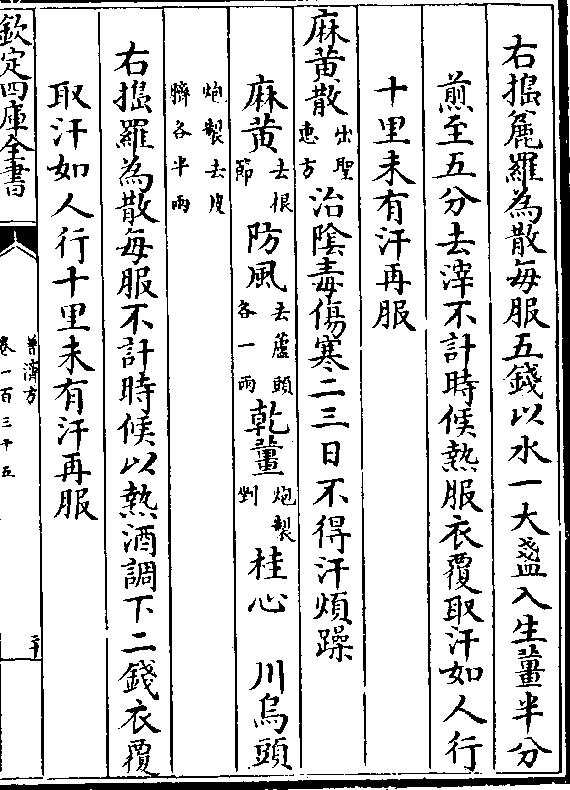 右搗麄羅為散每服五錢以水一大盞入生薑半分
煎至五分去滓不計時候熱服衣覆取汗如人行
十里未有汗再服
麻黄散出聖惠方治陰毒傷寒二三日不得汗煩躁
麻黄去根節防風去蘆頭各一兩乾薑炮製剉桂心 川烏頭
炮製去皮臍各半兩
右搗羅為散每服不計時候以熱酒調下二錢衣覆
取汗如人行十里未有汗再服
欽定四庫全書
普濟方
卷一百三十五